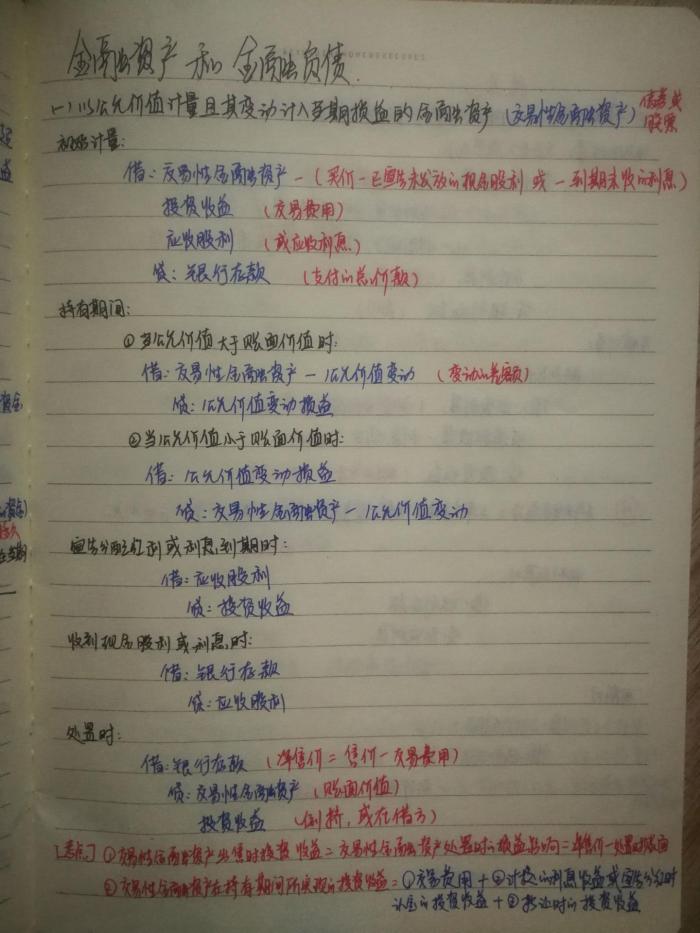 金融资产和金融负债.
(一)以公允价值计量且其变动计入当期损益的金融资产(交易性金融资产)债券或股票
初始计量:
借:交易性金融资产-(买价-已宣告未发放的现金股利或-到期未收的利息)
投资收益 (交易费用)
应收股利 (或应收利息)
贷:银行存款 (支付的总价款)
持有期间:
①当公允价值大于账面价值时:
借:交易性金融资产-公允价值变动 (变动的差额)
贷:公允价值变动损益
②当公允价值小于账面价值时:
借:公允价值变动损益
贷:交易性金融资产-公允价值变动
宣告分配红利或利息到期时:
借:应收股利
贷:投资收益
收到现金股利或利息时:
借:银行存款
贷:应收股利
处置时:
借:银行存款 (净售价=售价-交易费用)
贷:交易性金融资产 (账面价值)
投资收益 (倒挤,或在借方)
[考点]①交易性金融资产出售时投资收益=交易性金融资产处置时的损益影响=净售价-处置时账面
②交易性金融资产在持有期间所实现的投资收益=①交易费用+②计提的利息收益或宣告分红时
认定的投资收益+③转让时的投资收益